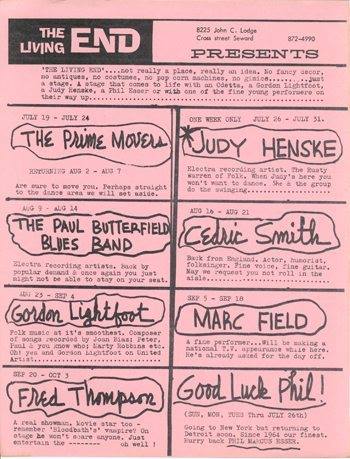 THE LIVING END
8225 John C. Lodge
Cross street Seward 872-4990
PRESENTS
'THE LIVING END'....not really a place, really an idea. No fancy decor,
no antiques, no costumes, no pop corn machines, no gimics.........just
a stage. A stage that comes to life with an Odetta, a Gordon Lightfoot,
a Judy Henske, a Phil Esser or with one of the fine young performers on
their way up.....
JULY 19 - JULY 24
The Prime Movers
RETURNING AUG 2 - AUG 7
Are sure to move you. Perhaps straight
to the dance area we will set aside.
ONE WEEK ONLY JULY 26 - JULY 31.
*JUDY HENSKE
Electra recording artist. The Rusty
warren of Folk. When Judy's here you
won't want to dance. She & the group
do the swinging.....
AUG 9 - AUG 14
THE PAUL BUTTERFIELD
BLUES BAND
Electra recording artists. Back by
popular demand & once again you just
might not be able to stay on your seat.
AUG 16 - AUG 21
Cedric Smith
Back from England. Actor, humorist,
folksinger. Fine voice, fine guitar.
May we request you not roll in the
aisle.
AUG 23 - SEP 4
Gordon Lightfoot
Folk music at it's smoothest. Composer
of songs recorded by Joan Biaz; Peter,
Paul & you know who; Marty Robbins etc.
Oh! yes and Gordon Lightfoot on United
Artist
SEP 5 - SEP 18
MARC FIELD
A fine performer...Will be making a
national T.V. appearance while here.
He's already asked for the day off.
SEP 20 - OCT 3
Fred Thompson
A real showman. Movie star too -
remember 'Bloodbath's' vampire? On
stage he won't scare anyone. Just
entertain the -------- oh well !
Good Luck Phil!
(SUN, MON, TUES Thru JULY 26th)
Going to New York but returning to
Detroit soon. Since 1964 our finest.
Hurry back PHIL MARCUS ESSER.